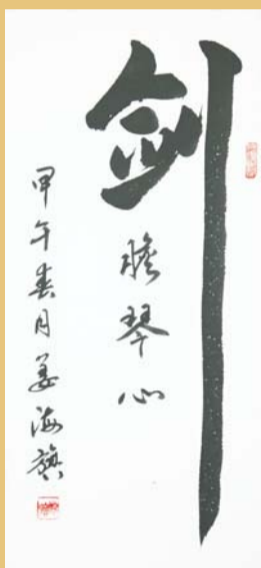 剑
胆琴心
甲午春月姜海旗